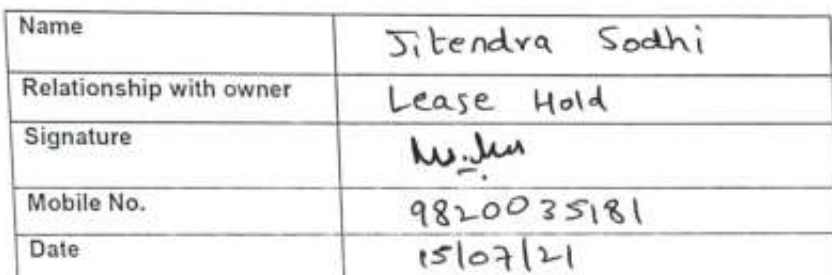 Name Jitendra Sodhi
Relationship with owner Lease Hold
Signature
Mobile No. 9820035181
Date 15/07/21